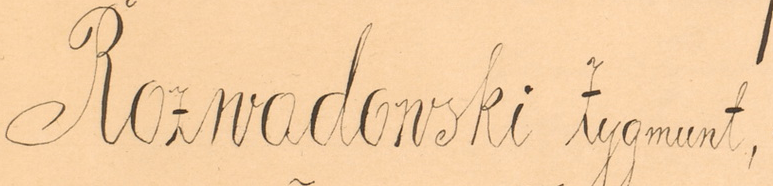 Rozwadowski Zygmunt,